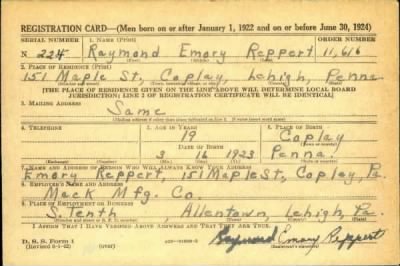 REGISTRATION CARD—(Men born on or after January 1, 1922 and on or before June 30, 1924)
SERIAL NUMBER 1. NAME (Print) ORDER NUMBER
N 224 Raymond Emory Reppert 11,616
2. PLACE OF RESIDENCE (Print)
151 Maple St, Coplay, Lehigh, Penna
[THE PLACE OF RESIDENCE GIVEN ON THE LINE ABOVE WILL DETERMINE LOCAL BOARD
JURISDICTION; LINE 2 OF REGISTRATION CERTIFICATE WILL BE IDENTICAL]
3. MAILING ADDRESS
Same
[Mailing address if other than place indicated on line 2. If same insert word same]
4. TELEPHONE 5. AGE IN YEARS 6. PLACE OF BIRTH
19 Coplay
DATE OF BIRTH
3 16 1923 Penna.
(Exchange) (Number) (Mo.) (Day) (Yr.)
7. NAME AND ADDRESS OF PERSON WHO WILL ALWAYS KNOW YOUR ADDRESS
Emory Reppert, 151 Maple St, Coplay, Pa.
8. EMPLOYER'S NAME AND ADDRESS
Mack Mfg. Co.
9. PLACE OF EMPLOYMENT OR BUSINESS
S. Tenth Allentown, Lehigh, Pa.
I AFFIRM THAT I HAVE VERIFIED ABOVE ANSWERS AND THAT THEY ARE TRUE.
D. S. S. Form 1 (over)
Raymond Emory Reppert